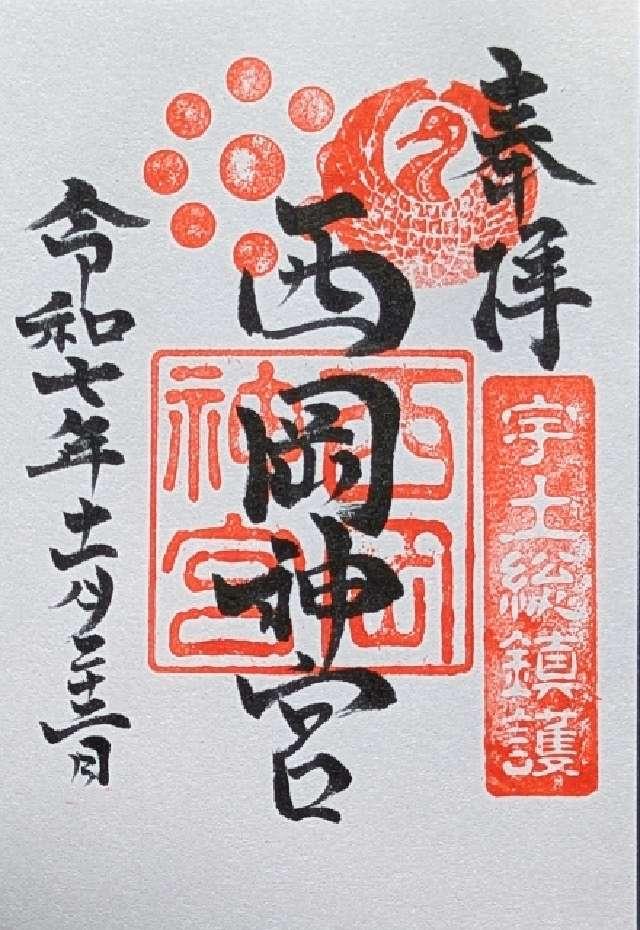 奉拝
宇土総鎮護
西岡神宮
西岡
神宮
令和七年十一月二十二日